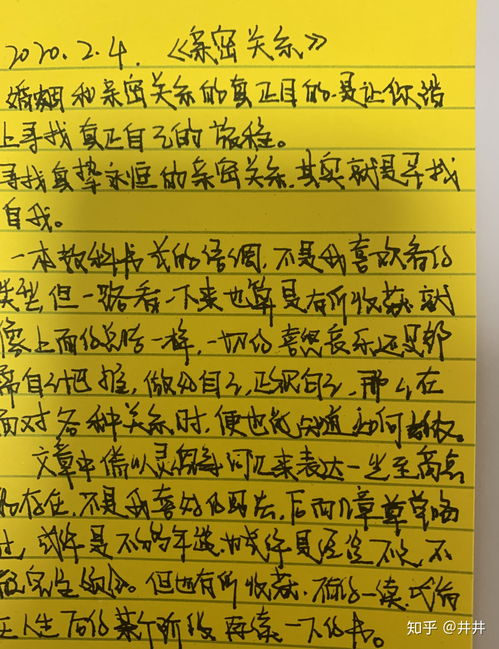 2020.2.4. 《亲密关系》
婚姻和亲密关系的真正目的.是让你踏
上寻找真正自己的旅程。
寻找真挚永恒的亲密关系.其实就是寻找
自我。
一本教科书式的语调,不是我喜欢看的
类型但一路看下来也算是有所收获就
像上面的总结一样,一切的喜怒哀乐还是都
靠自己把握,做好自己,正视自己,那么在
面对各种关系时,便也能知道如何
文章中借以灵魂等词汇来表达一些至高点
的存在,不是我喜好的写法,后面几章草草略
过,或许是不够年迈.或许是经验不足,不
能完全领会。但也有所收获.不妨一读,或者
在人生后的某个阶段再读一下的书。
知乎 @井井